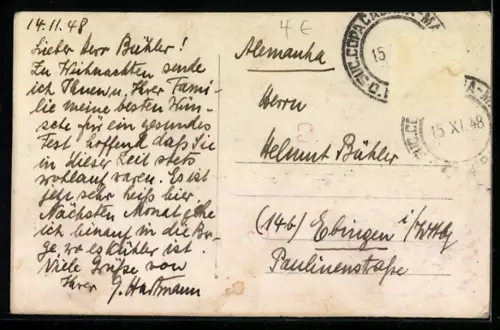 14.11.48
Lieber Herr Bühler!
Zu Weihnachten sende
ich Ihnen u. Ihrer Fami-
lie meine besten Wün-
sche für ein gesundes
Fest hoffend daß Sie
in dieser Zeit stets
wohlauf waren. Es ist
jetzt sehr heiß hier
Nächsten Monat gehe
ich hinauf in die Ber-
ge, wo es kühler ist.
Viele Grüße von
Ihrer J. Hartmann
4 €
Alemanha
Herrn
Helmut Bühler
(14b) Ebingen i/Wttbg
Paulinenstraße
SUC. COPACABANA-MA
15
15 XI 48